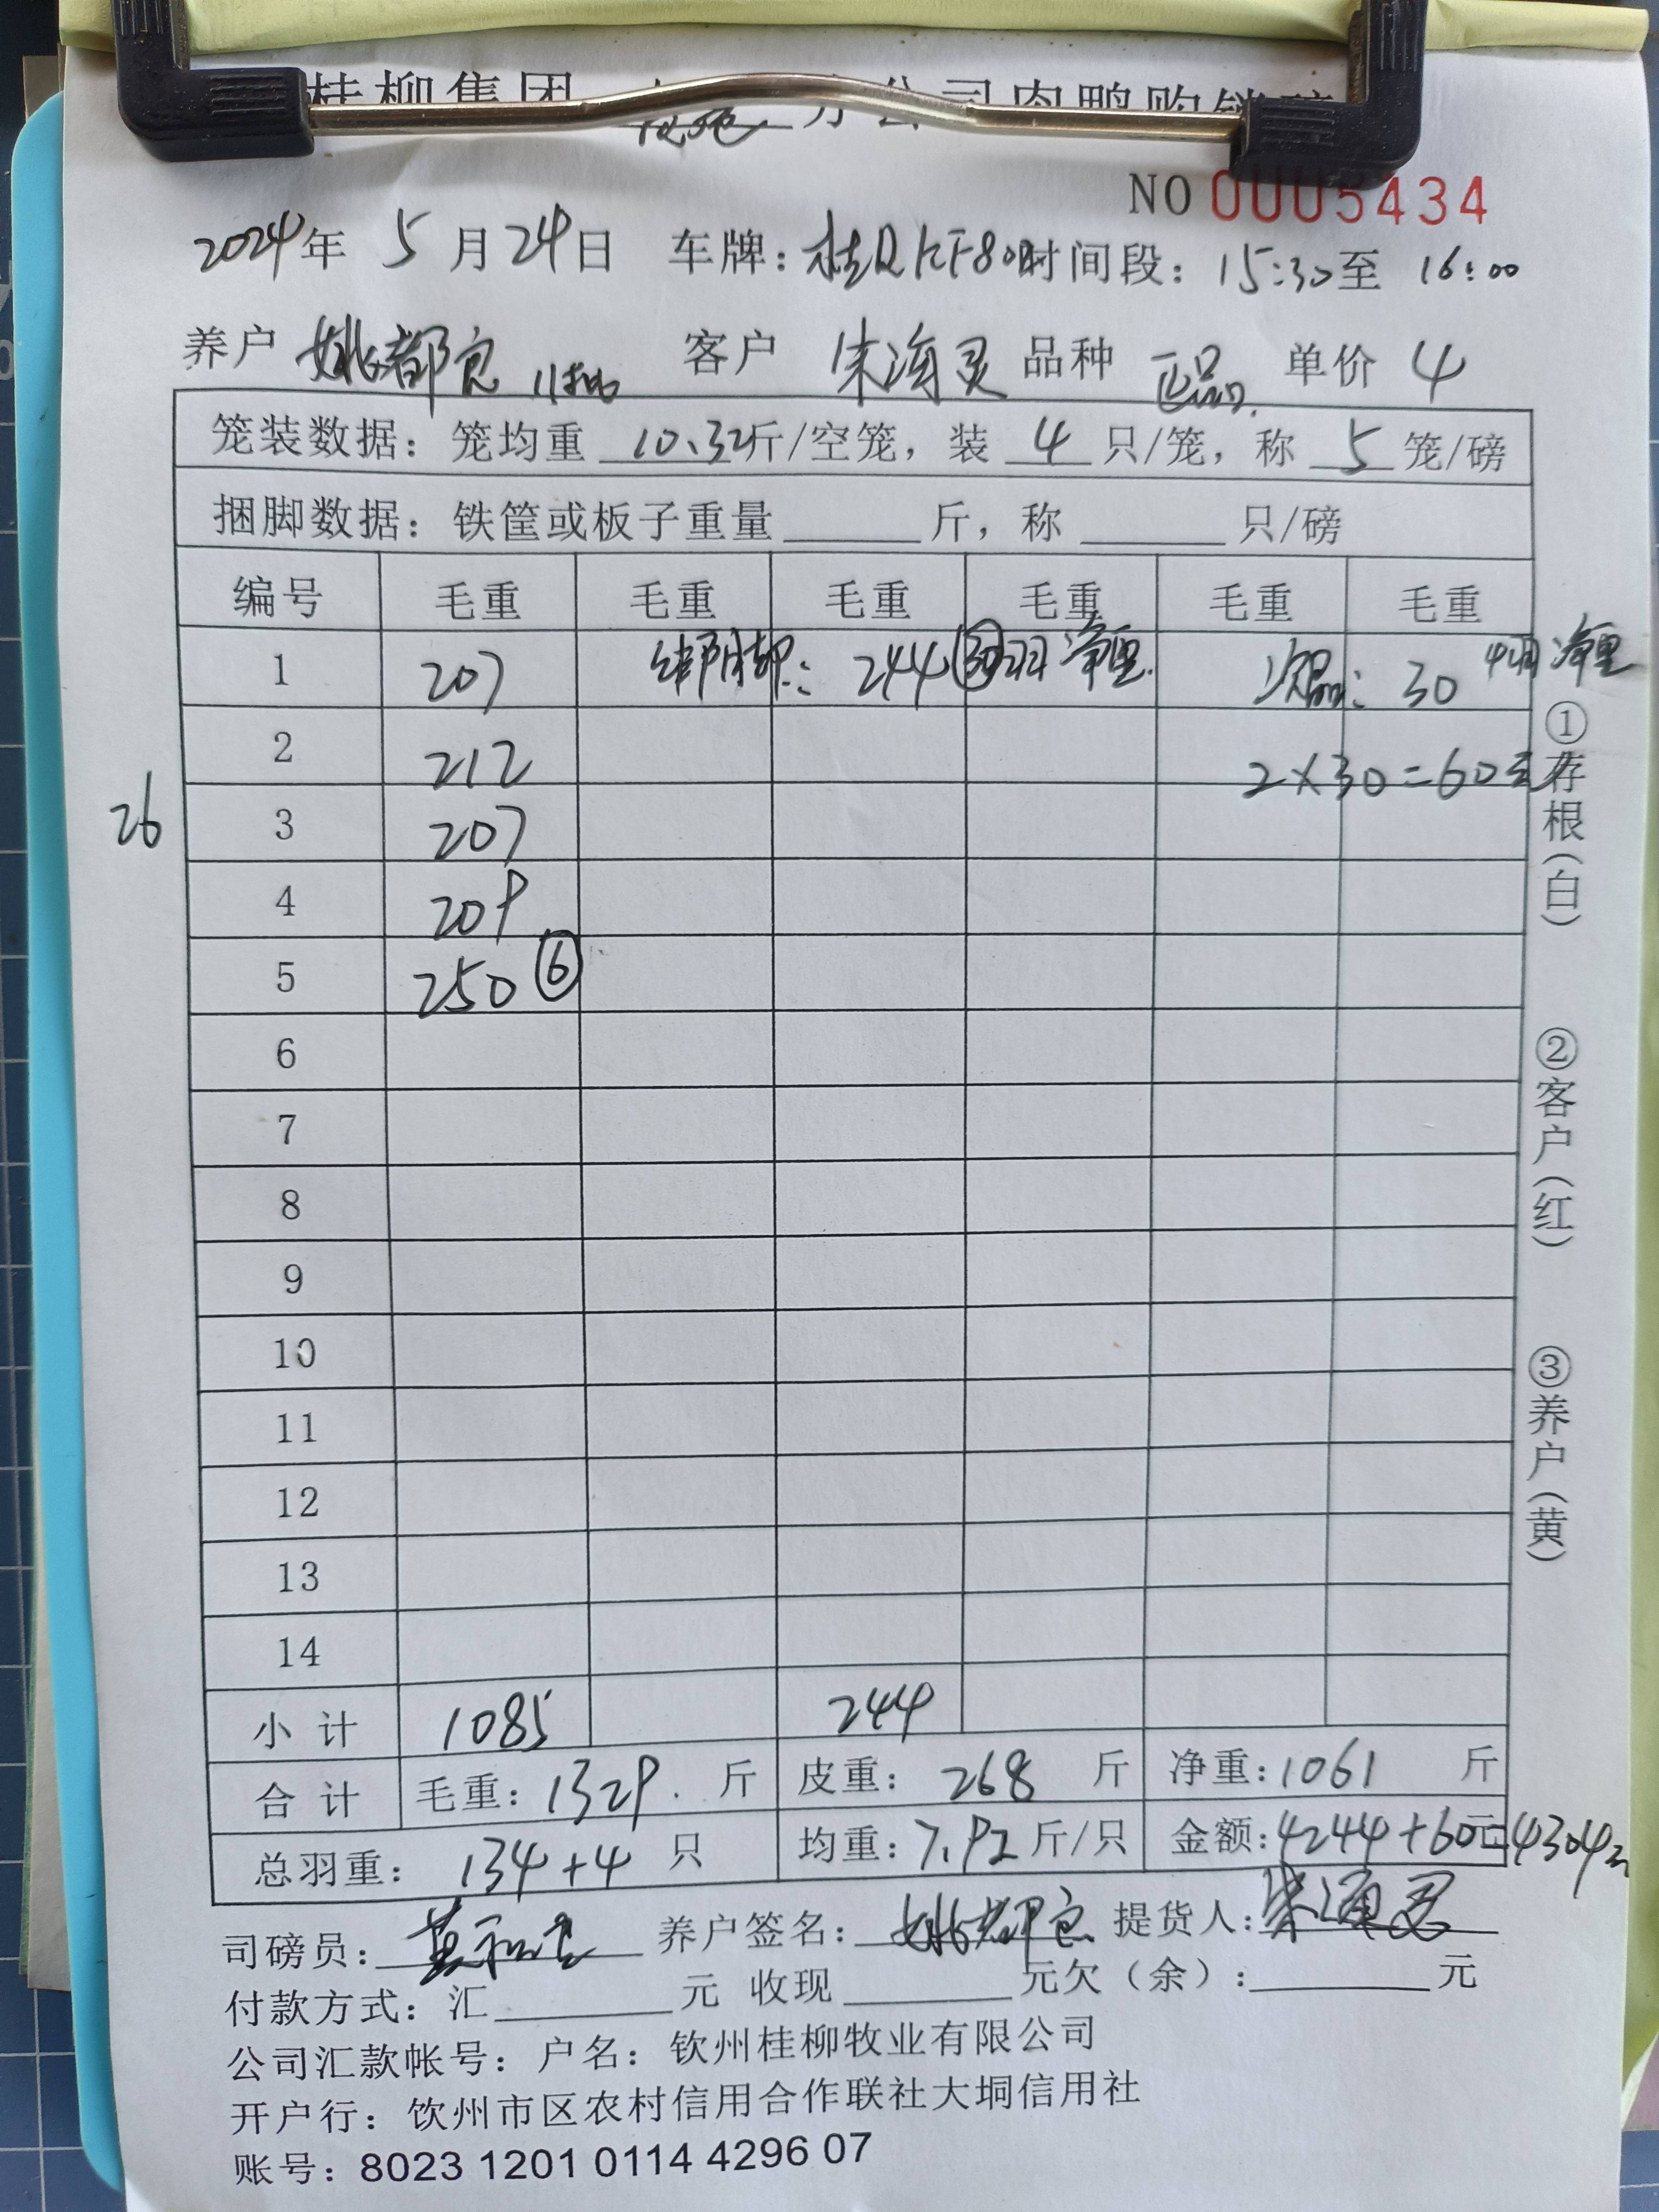 桂柳集团 分公司肉鸭购销磅
NO 0005434
2024年 5月24日 车牌: 时间段: 15:30至 16:00
养户 姚都良 11批 客户 朱海灵 品种 正品 单价 4
笼装数据: 笼均重 10.32斤/空笼, 装 4 只/笼, 称 5 笼/磅
捆脚数据: 铁筐或板子重量 斤, 称 只/磅
编号 毛重 毛重 毛重 毛重 毛重 毛重
1 207 绑脚: 244 30羽 净重. 次品: 30 4羽 净重
2 212 2×30=60元
26
3 207
4 209
5 250 ⑥
6
7
8
9
10
11
12
13
14
小计 1085 244
合计 毛重: 1329. 斤 皮重: 268 斤 净重: 1061 斤
总羽重: 134+4 只 均重: 7.92 斤/只 金额: 4244+60元=4304元
司磅员: 养户签名: 姚都良 提货人: 朱海灵
付款方式: 汇 元 收现 元欠(余): 元
公司汇款帐号: 户名: 钦州桂柳牧业有限公司
开户行: 钦州市区农村信用合作联社大垌信用社
账号: 8023 1201 0114 4296 07
①存根(白)
②客户(红)
③养户(黄)